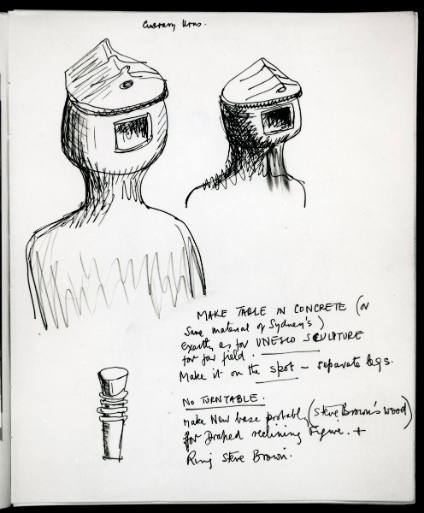 Urns.
MAKE TABLE IN CONCRETE (or
Same material of Sydney's)
exactly as for UNESCO SCULPTURE
for far field.
Make it on the spot – separate legs.
NO TURNTABLE.
Make New base probably (Steve Brown's wood)
for Draped reclining Figure. +
Ring Steve Brown.